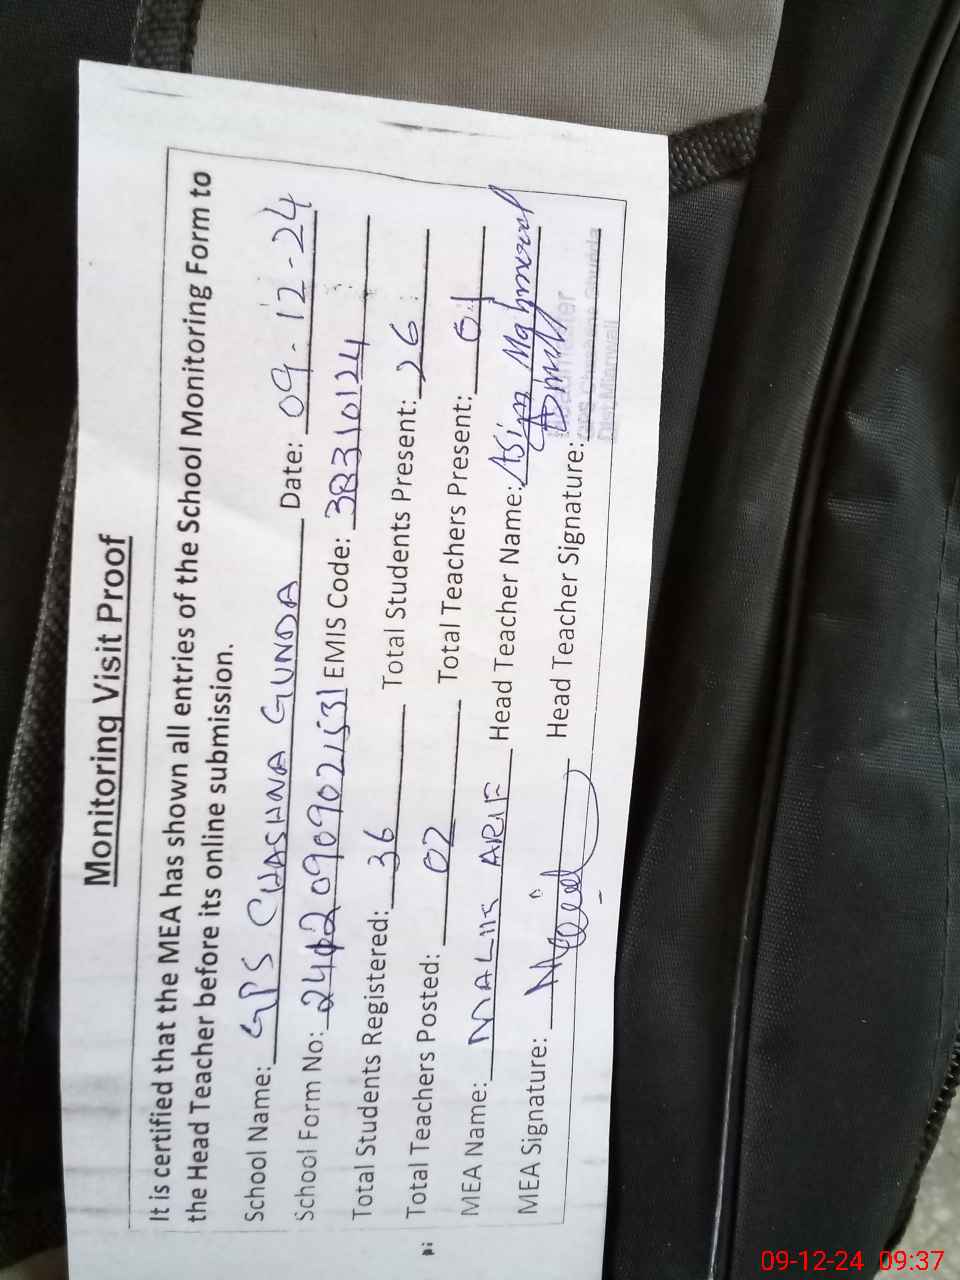 Monitoring Visit Proof
It is certified that the MEA has shown all entries of the School Monitoring Form to
the Head Teacher before its online submission.
School Name: GPS CHASHNA GUNDA Date: 09-12-24
School Form No: 24120909021531 EMIS Code: 38310124
Total Students Registered: 36 Total Students Present: 26
Total Teachers Posted: 02 Total Teachers Present: 01
MEA Name: MALIK ARIF Head Teacher Name: Asim Mahmood
MEA Signature: Head Teacher Signature:
Mianwali
09-12-24 09:37